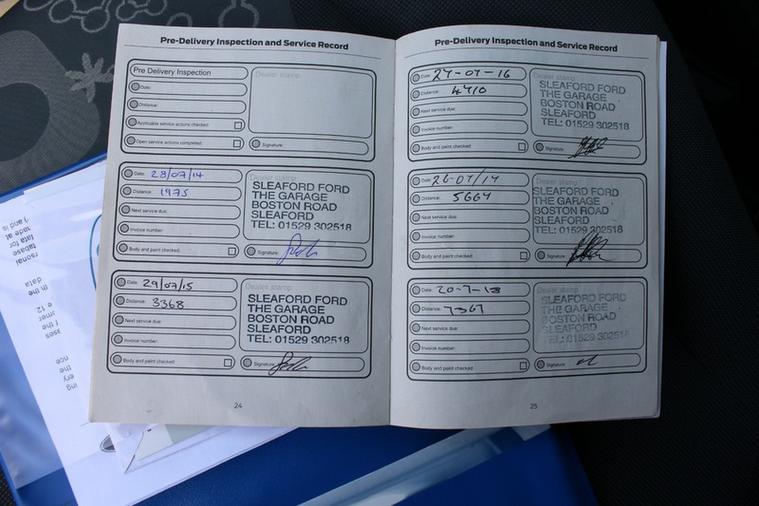 Pre-Delivery Inspection and Service Record
Pre Delivery Inspection
Date:
Distance:
Applicable service actions checked:
Open service actions completed:
Dealer stamp
Signature:
Date: 28/07/14
Distance: 1975
Next service due:
Invoice number:
Body and paint checked:
Dealer stamp
SLEAFORD FORD
THE GARAGE
BOSTON ROAD
SLEAFORD
TEL: 01529 302518
Signature:
Date: 29/07/15
Distance: 3368
Next service due:
Invoice number:
Body and paint checked:
Dealer stamp
SLEAFORD FORD
THE GARAGE
BOSTON ROAD
SLEAFORD
TEL: 01529 302518
Signature:
24
Pre-Delivery Inspection and Service Record
Date: 27-07-16
Distance: 4710
Next service due:
Invoice number:
Body and paint checked:
Dealer stamp
SLEAFORD FORD
THE GARAGE
BOSTON ROAD
SLEAFORD
TEL: 01529 302518
Signature:
Date:
Distance: 5664
Next service due:
Invoice number:
Body and paint checked:
Dealer stamp
SLEAFORD FORD
THE GARAGE
BOSTON ROAD
SLEAFORD
TEL: 01529 302518
Signature:
Date: 20-7-18
Distance: 7367
Next service due:
Invoice number:
Body and paint checked:
Dealer stamp
SLEAFORD FORD
THE GARAGE
BOSTON ROAD
SLEAFORD
TEL: 01529 302518
Signature:
25